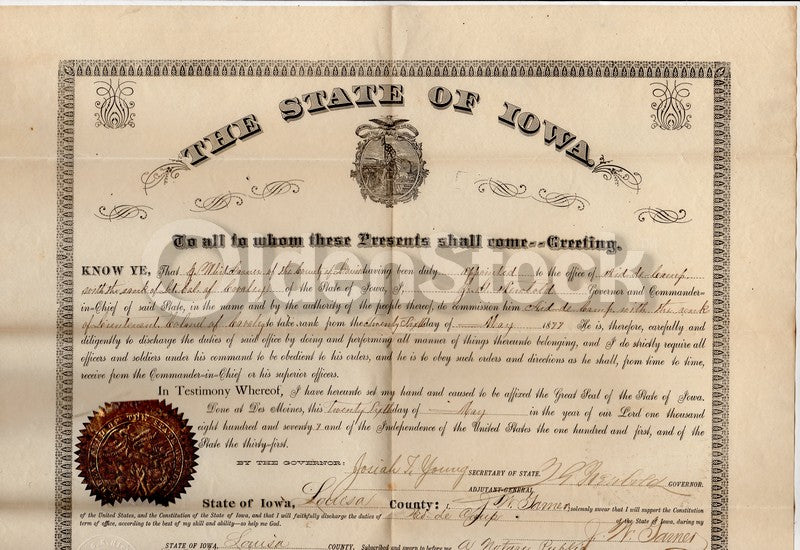 THE STATE OF IOWA.
To all to whom these Presents shall come--Greeting.
KNOW YE, That J. W. Garner of the County of Louisa having been duly appointed to the office of Aid de Camp
with the rank of Lt Col of Cavalry of the State of Iowa, I, J. G. Newbold Governor and Commander-
in-Chief of said State, in the name and by the authority of the people thereof, do commission him Aid de Camp with the rank
of Lieutenant Colonel of Cavalry to take rank from the Twenty Sixth day of May 1877 He is, therefore, carefully and
diligently to discharge the duties of said office by doing and performing all manner of things thereunto belonging, and I do strictly require all
officers and soldiers under his command to be obedient to his orders, and he is to obey such orders and directions as he shall, from time to time,
receive from the Commander-in-Chief or his superior officers.
In Testimony Whereof, I have hereunto set my hand and caused to be affixed the Great Seal of the State of Iowa.
Done at Des Moines, this twenty sixth day of May in the year of our Lord one thousand
eight hundred and seventy 7 and of the Independence of the United States the one hundred and first, and of the
State the thirty-first.
BY THE GOVERNOR:
Josiah T. Young SECRETARY OF STATE. J G Newbold GOVERNOR.
ADJUTANT-GENERAL
State of Iowa, Louisa County: I, J. W. Garner solemnly swear that I will support the Constitution
of the United States, and the Constitution of the State of Iowa, and that I will faithfully discharge the duties of Aid de Camp of the State of Iowa, during my
term of office, according to the best of my skill and ability—so help me God. J. W. Garner
STATE OF IOWA, Louisa COUNTY. Subscribed and sworn to before me A Notary Public
OldenStock